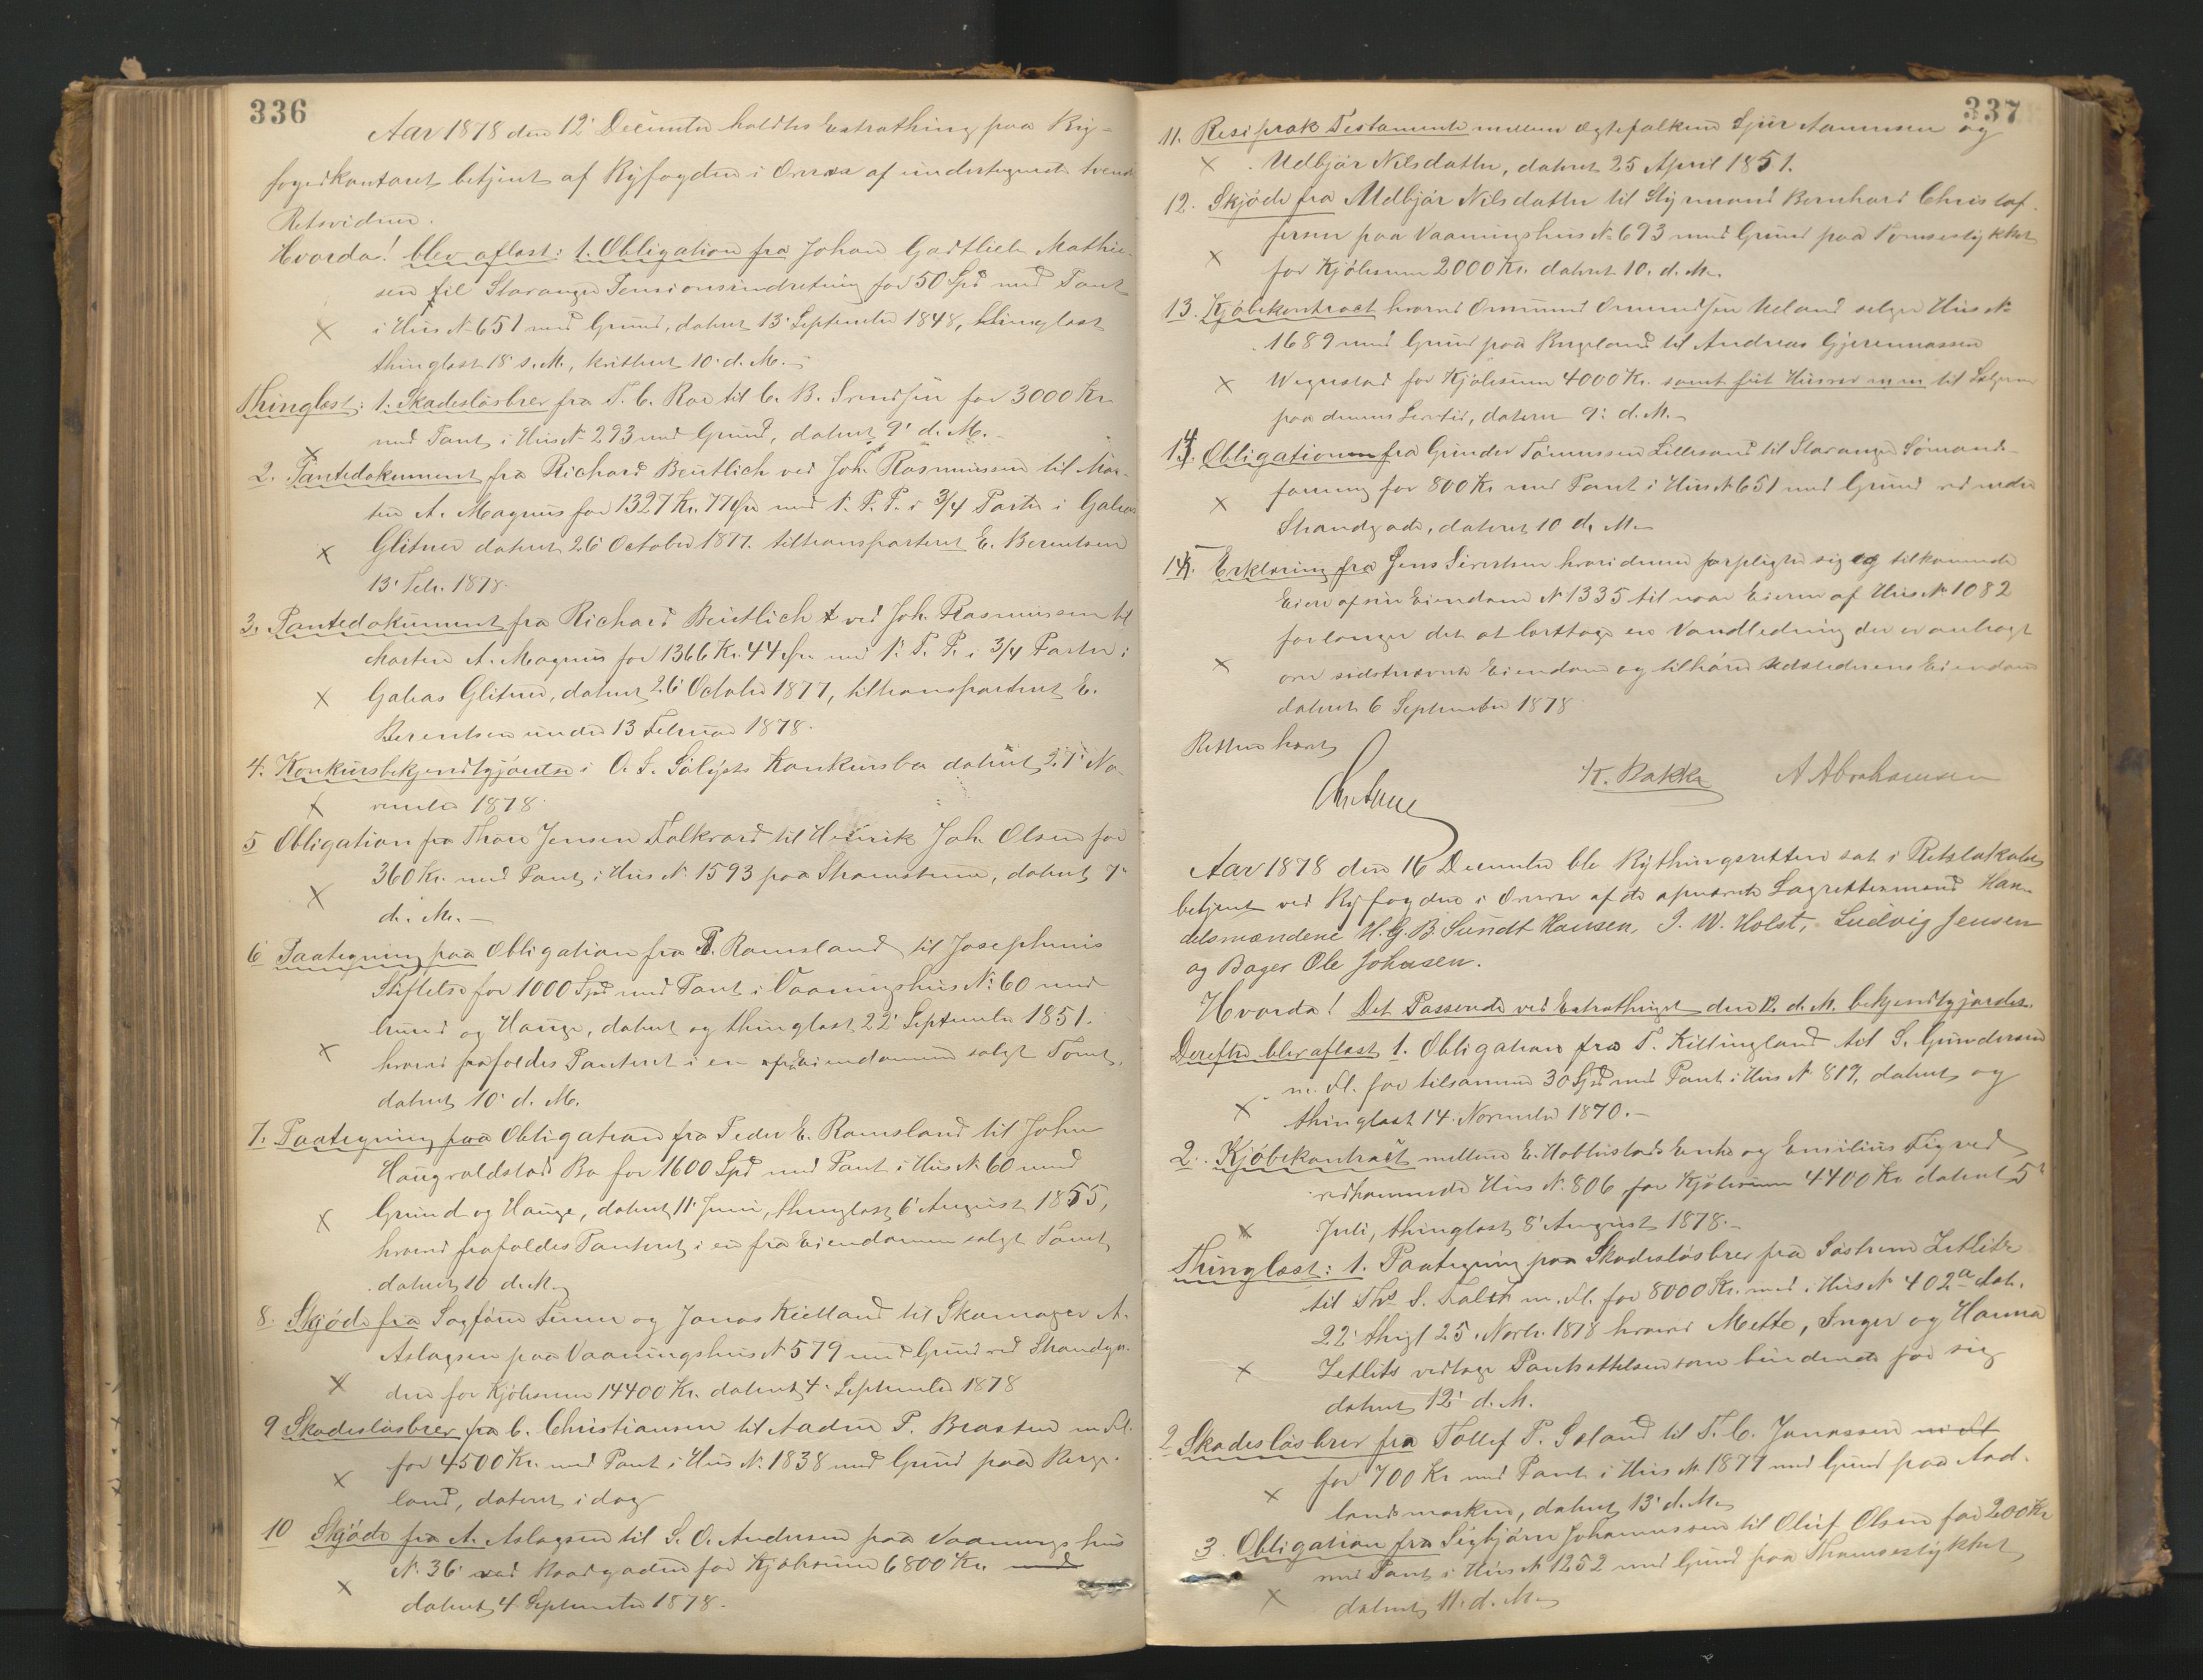 336
Aar 1878 den 12' December holdtes Extrathing paa By-
fogedkontoret betjent af Byfogden i Overvær af undertegnede tvende
Retsvidner.
Hvorda! blev aflæst: 1. Obligation fra Johan Gadtlich Mathie-
sen til Stavanger Pensionsindretning for 50 Spd med Pant
x i Hus No 651 med Grund, dateret 13' September 1848,
thinglæst 18' s. M., kvitteret 10' d. M. -
Thinglæst: 1. Skadesløsbrev fra T. C. Roe til C. B. Svendsen for 3000 Kr
x med Pant i Hus No 293 med Grund, dateret 9' d. M. -
2. Pantedokument fra Richard Beutlich ved Joh. Rasmussen til Mor-
ten A. Magnus for 1327 Kr. 77 Øre med 1. P. P. i 3/4 Parter i Galeas
x Glitner dateret 26' October 1877. tiltransporteret E. Berentsen
13' Febr. 1878.
3. Pantedokument fra Richard Beutlich ved Joh. Rasmussen til
Morten A. Magnus for 1366 Kr. 44 Øre med 1. P. P. i 3/4 Parter i
x Galeas Glitner, dateret 26' October 1877, tiltransporteret E.
Berentsen under 13 Februar 1878.
4. Konkursbekjendtgjørelse i O. S. Sølysts Konkursbo dateret 27' No-
x vember 1878.
5 Obligation fra Thore Jensen Falkvard til Henrik Joh. Olsen for
x 360 Kr. med Pant i Hus No 1593 paa Strømstenen, dateret 7'
d. M. -
6 Paategning paa Obligation fra P. Ramsland til Josephines
Stiftelse for 1000 Spd med Pant i Vaaningshus No 60 med
Grund og Hauge, dateret og thinglæst 22' September 1851.
x hvorved frafaldes Panteret i en fra Eiendommen solgt Tomt,
dateret 10' d. M.
7. Paategning paa Obligation fra Peder E. Ramsland til John
Haugvaldstads Bo for 1600 Spd med Pant i Hus No 60 med
x Grund og Hauge, dateret 11' Juni, thinglæst 6' August 1855,
hvorved frafaldes Panteret i en fra Eiendommen solgt Tomt
dateret 10 d. M.
8. Skjøde fra Sagfører Finne og Jonas Kielland til Skomager A.
Aslagsen paa Vaaningshus No 579 med Grund ved Strandga-
x den for Kjøbesum 14400 Kr. dateret 4' September 1878
9 Skadesløsbrev fra C. Christiansen til Aadne P. Brasten m. Fl.
x for 4500 Kr. med Pant i Hus No. 1838 med Grund paa Berge-
land, dateret idag
10 Skjøde fra A. Aslagsen til S. O. Andersen paa Vaaningshus
No 36' ved for Kjøbesum 6800 Kr. med
x dateret 4 September 1878.
337
11. Resiprok Testamente mellem Ægtefolkene Sjur Aanensen og
x Udbjør Nilsdatter, dateret 25 April 1851.
12. Skjøde fra Udbjør Nilsdatter til Styrmand Bernhard Christof-
fersen paa Vaaningshus No 693 med Grund paa
x for Kjøbesum 2000 Kr. dateret 10. d. M.
13. Kjøbekontract hvorved Ommund Ommundsen Ueland sælger Hus No
1689 med Grund paa Bergeland til Andreas
x for Kjøbesum 4000 Kr. samt frit Husrum til Sælgeren
paa dennes Levetid, dateret 9' d. M. -
14. Obligation fra Gunder Tønnessen Lillesand til Stavanger Sømands-
x forening for 800 Kr med Pant i Hus No 651 med Grund ved nedre
Strandgade, dateret 10 d. M. -
15. Erklæring fra Jens Sivertsen hvori denne forpligter sig og tilkommende
Eiere af sin Eiendom No 1335 til naar Eieren af Hus No 1082
forlanger det at borttage en Vandledning der er anbragt
x over sidstnævnte Eiendom og tilhører Udstederens Eiendom
dateret 6 September 1878
Retten hævet
K. Bakke A Abrahamsen
Aar 1878 den 16 December ble Bythingsretten sat i Retslokalet
betjent ved Byfogden i Overvær af de opnævnte Lagrettesmænd Han-
delsmændene H. G. B. Sundt Hansen, J. W. Holst, Ludvig Jensen
og Bager Ole Johnsen.
Hvorda! Det Passerede ved Extrathinget den 12. d. M. bekjendtgjordes.
Derefter blev aflæst 1. Obligation fra T. Killingland til S. Gundersen
m. Fl. for tilsammen 30 Spd med Pant i Hus No 819, dateret og
x thinglæst 14. November 1870. -
2. Kjøbekontract mellem E. Enke og Emilius Tigved
vedkommende Hus No. 806 for Kjøbesum 4400 Kr dateret 5'
x Juli, thinglæst 8' August 1878. -
Thinglæst: 1. Paategning paa Skadesløsbrev fra Søstrene Zetlitz
til Ths S. Falck m. Fl. for 8000 Kr. med i Hus No 402a dat.
22' thgl 25. Novbr. 1878 hvorved Mette, Inger og Hanna
x Zetlitz vedtage Pantsættelsen som bindende for sig
dateret 12' d. M.
2 Skadesløsbrev fra Tollef P. Goland til T. C. Jonassen m. Fl
x for 700 Kr med Pant i Hus No. 1877 med Grund paa Aad-
landsmarken, dateret 13' d. M.
3. Obligation fra Sigbjørn Johannessen til Oluf Olsen for 200 Kr
med Pant i Hus No 1252 med Grund paa
x dateret 11. d. M.